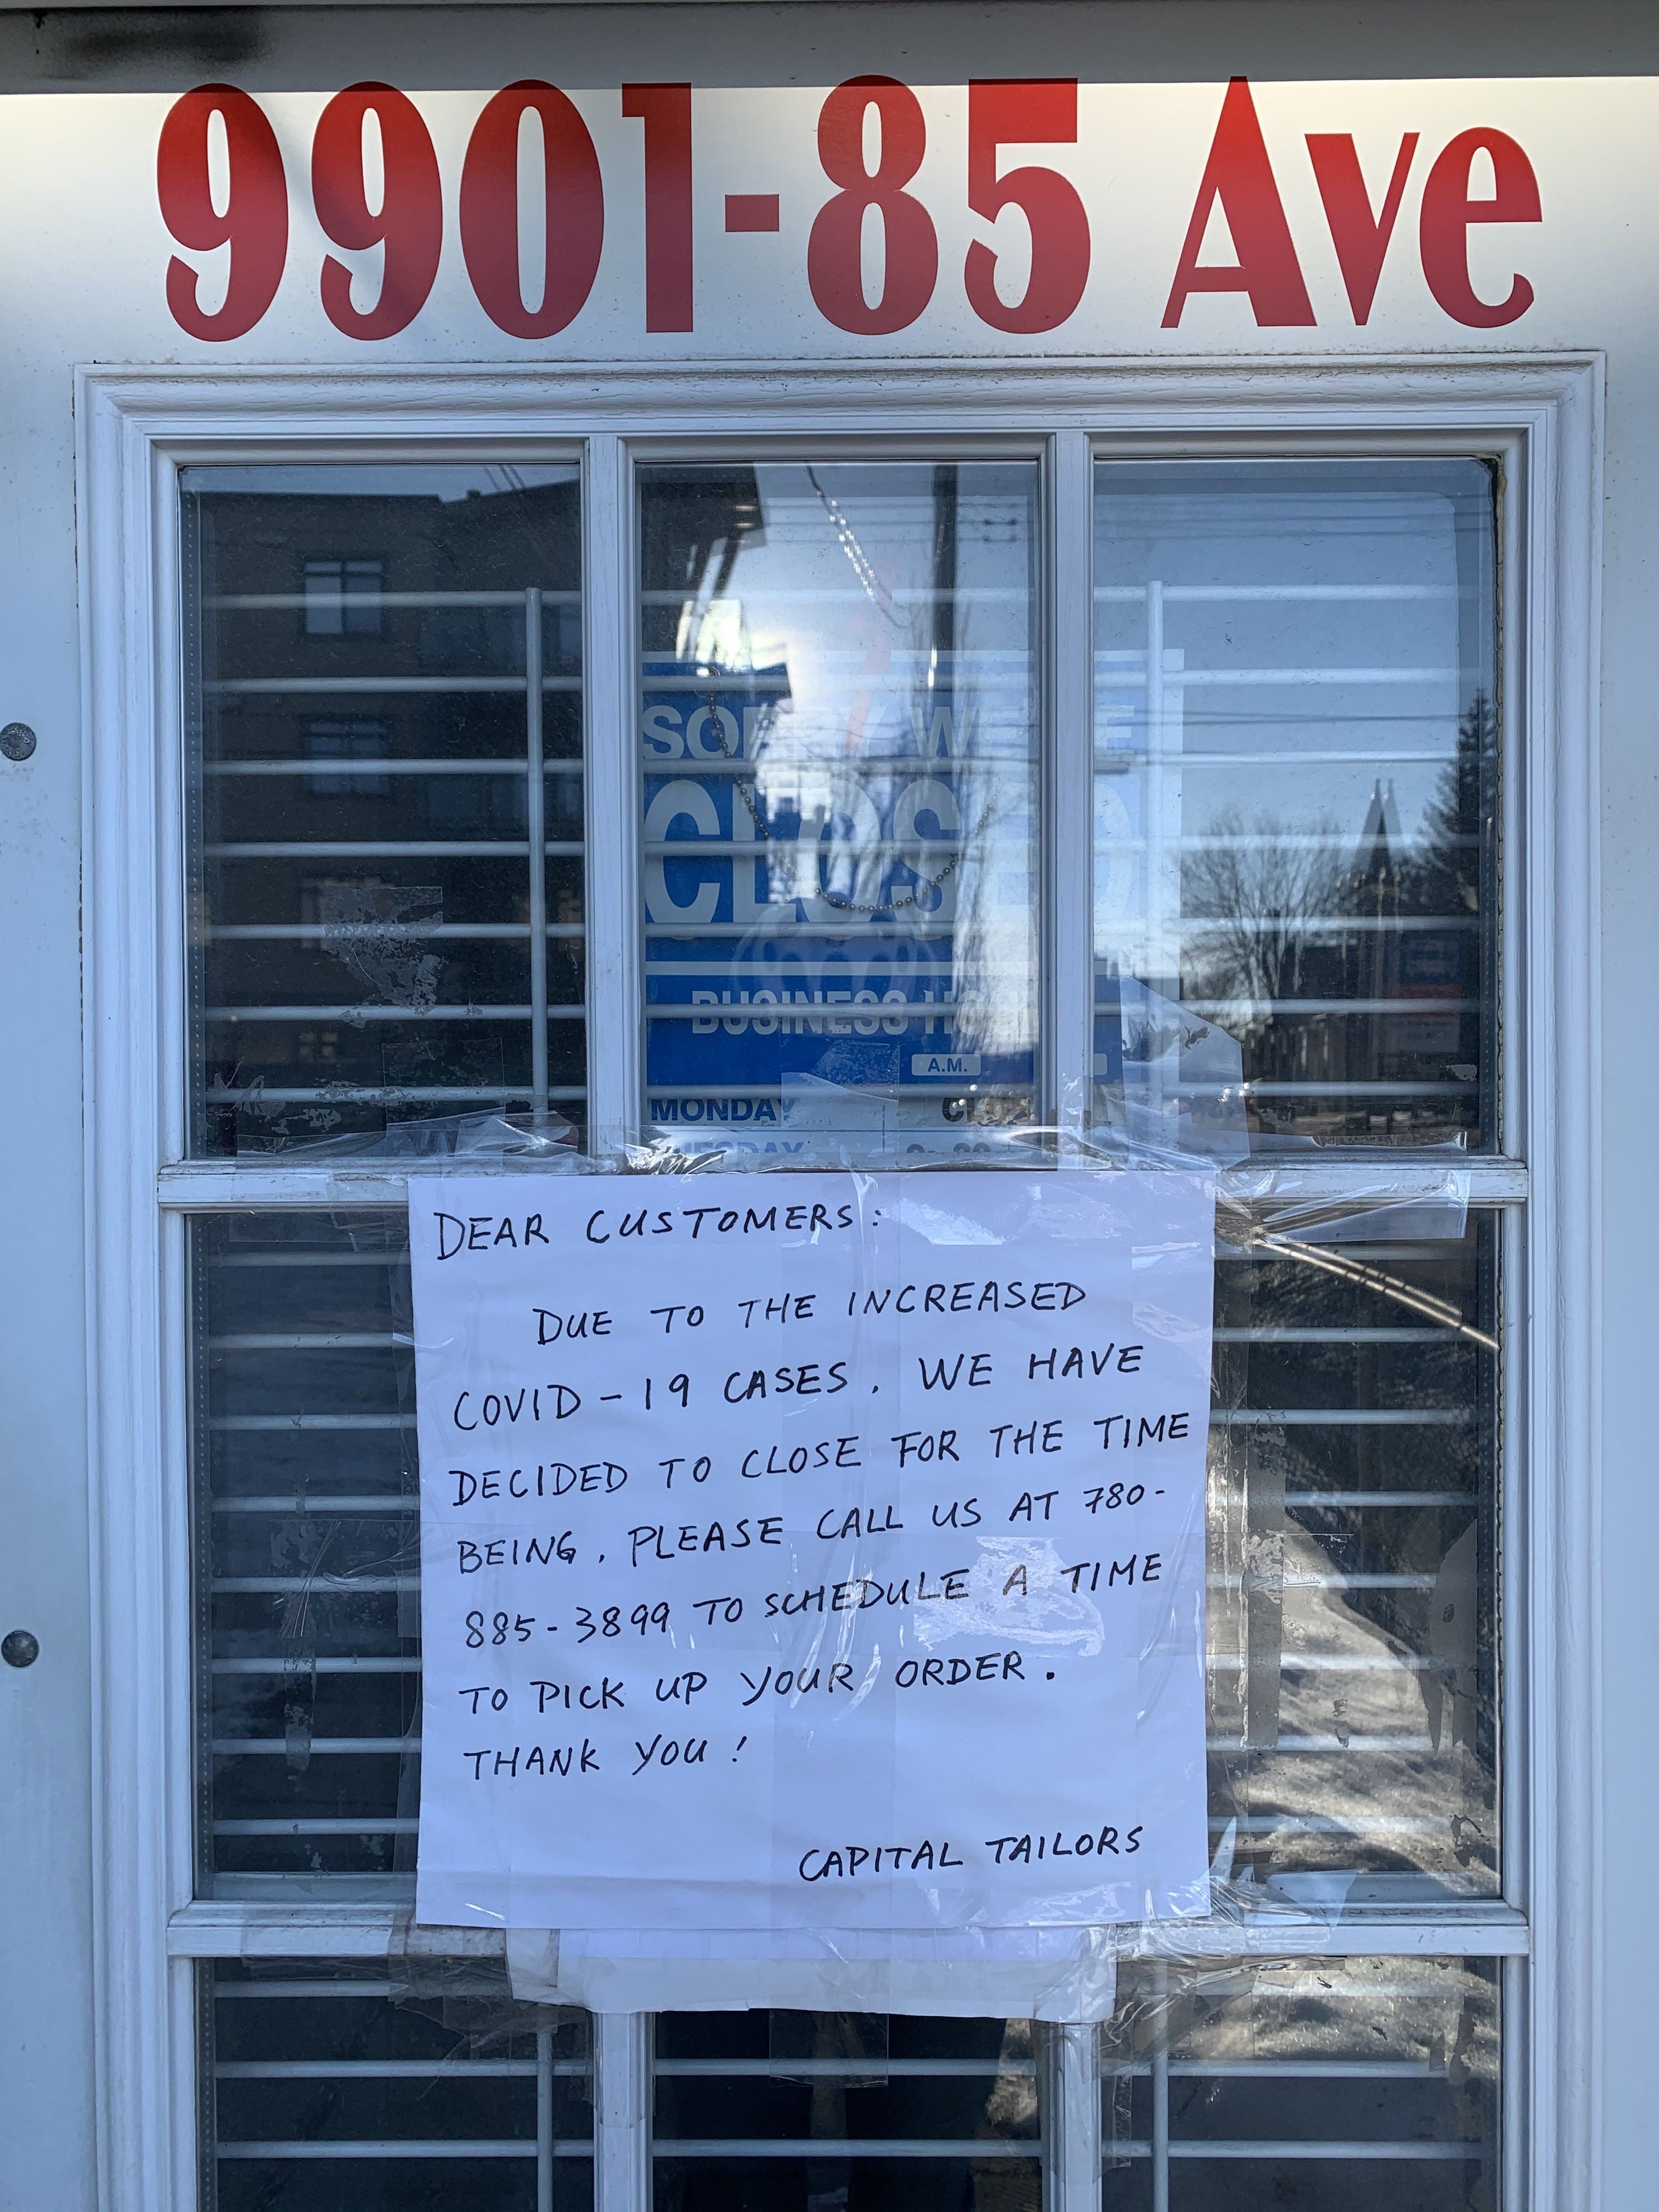 9901-85 Ave
SORRY WE'RE
CLOSED
BUSINESS
A.M.
MONDAY
DEAR CUSTOMERS:
DUE TO THE INCREASED
COVID-19 CASES, WE HAVE
DECIDED TO CLOSE FOR THE TIME
BEING. PLEASE CALL US AT 780-
885-3899 TO SCHEDULE A TIME
TO PICK UP YOUR ORDER.
THANK YOU!
CAPITAL TAILORS